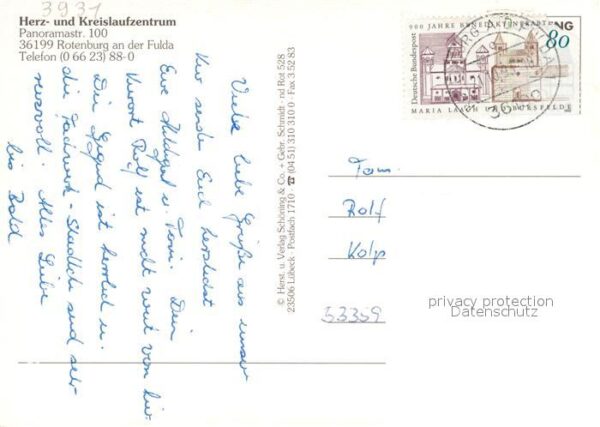 3931
Herz- und Kreislaufzentrum
Panoramastr. 100
36199 Rotenburg an der Fulda
Telefon (0 66 23) 88-0
Viele liebe Grüße aus unser
Kur sendet Euch herzlichst
Eure Hildegard u. Toni. Dein
Kurort Rolf ist nicht weit von hier
Die Gegend ist herrlich u.
die Fachwerk-Städtle sind sehr
reizvoll. Alles Liebe
bis Bald
© Herst. u. Verlag Schöning & Co. + Gebr. Schmidt · nd Rot 528
23506 Lübeck · Postfach 1710 · ☎ (04 51) 310 310 0 · Fax 3 52 83
900 JAHRE BENEDIKTINERABTEI
Deutsche Bundespost
80
MARIA LAACH URSFELDE
NG
36
Fam.
Rolf
Kolp
53359
privacy protection
Datenschutz